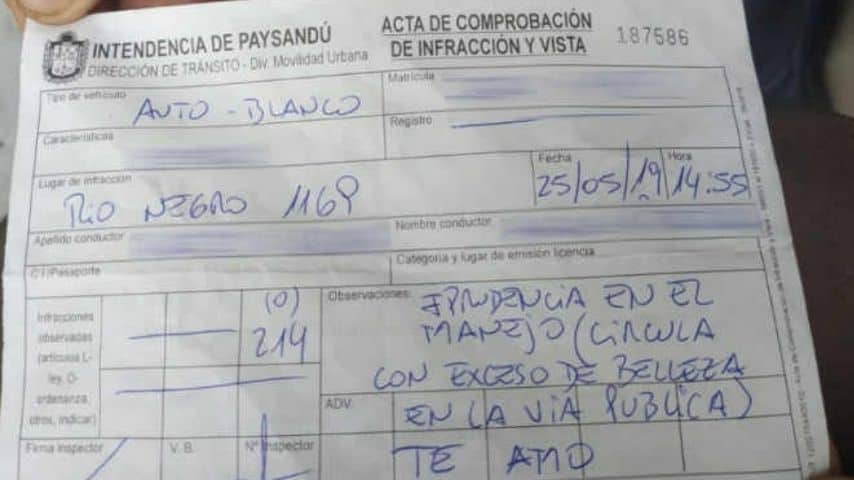 INTENDENCIA DE PAYSANDÚ
DIRECCIÓN DE TRÁNSITO - Div. Movilidad Urbana
ACTA DE COMPROBACIÓN
DE INFRACCIÓN Y VISTA
187586
Tipo de vehículo
AUTO - BLANCO
Matrícula
Características
Registro
Lugar de infracción
RIO NEGRO 1169
Fecha
25/05/19
Hora
14:55
Apellido conductor
Nombre conductor
C.I/Pasaporte
Categoría y lugar de emisión licencia
Infracciones
observadas
(artículos L-
ley, O-
ordenanza
otros, indicar)
(O)
214
Observaciones:
IPRUDENCIA EN EL
MANEJO (CIRCULA
CON EXCESO DE BELLEZA
EN LA VIA PUBLICA)
TE AMO
ADV.
Firma Inspector
V. B.
N° Inspector